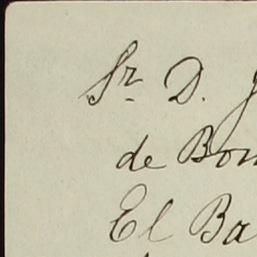 Sr. D. J
de Bon
El Ba